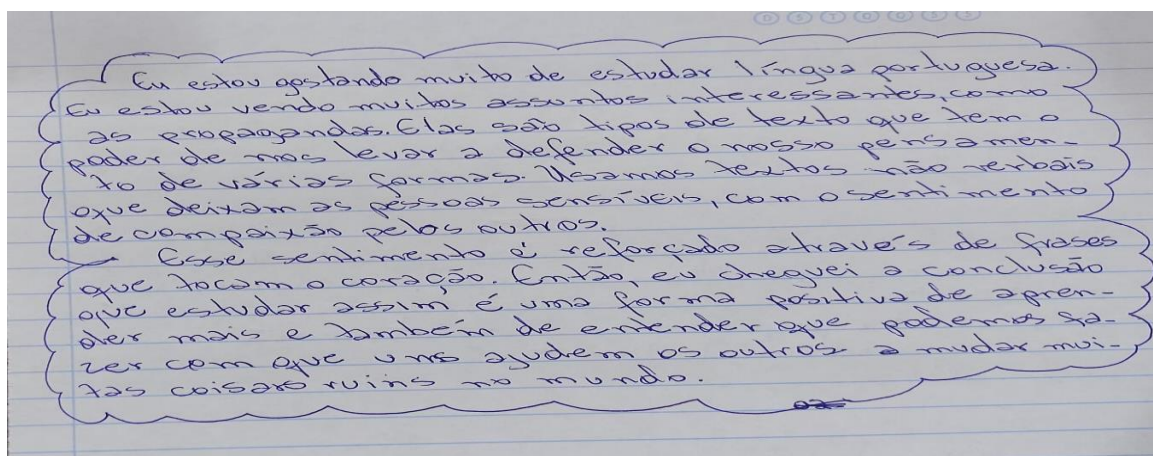 D S T Q Q S S
Eu estou gostando muito de estudar língua portuguesa.
Eu estou vendo muitos assuntos interessantes, como
as propagandas. Elas são tipos de texto que tem o
poder de nos levar a defender o nosso pensamen-
to de várias formas. Usamos textos não verbais
que deixam as pessoas sensíveis, com o sentimento
de compaixão pelos outros.
Esse sentimento é reforçado através de frases
que tocam o coração. Então, eu cheguei a conclusão
que estudar assim é uma forma positiva de apren-
der mais e também de entender que podemos fa-
zer com que uns ajudem os outros a mudar mui-
tas coisas ruins no mundo.